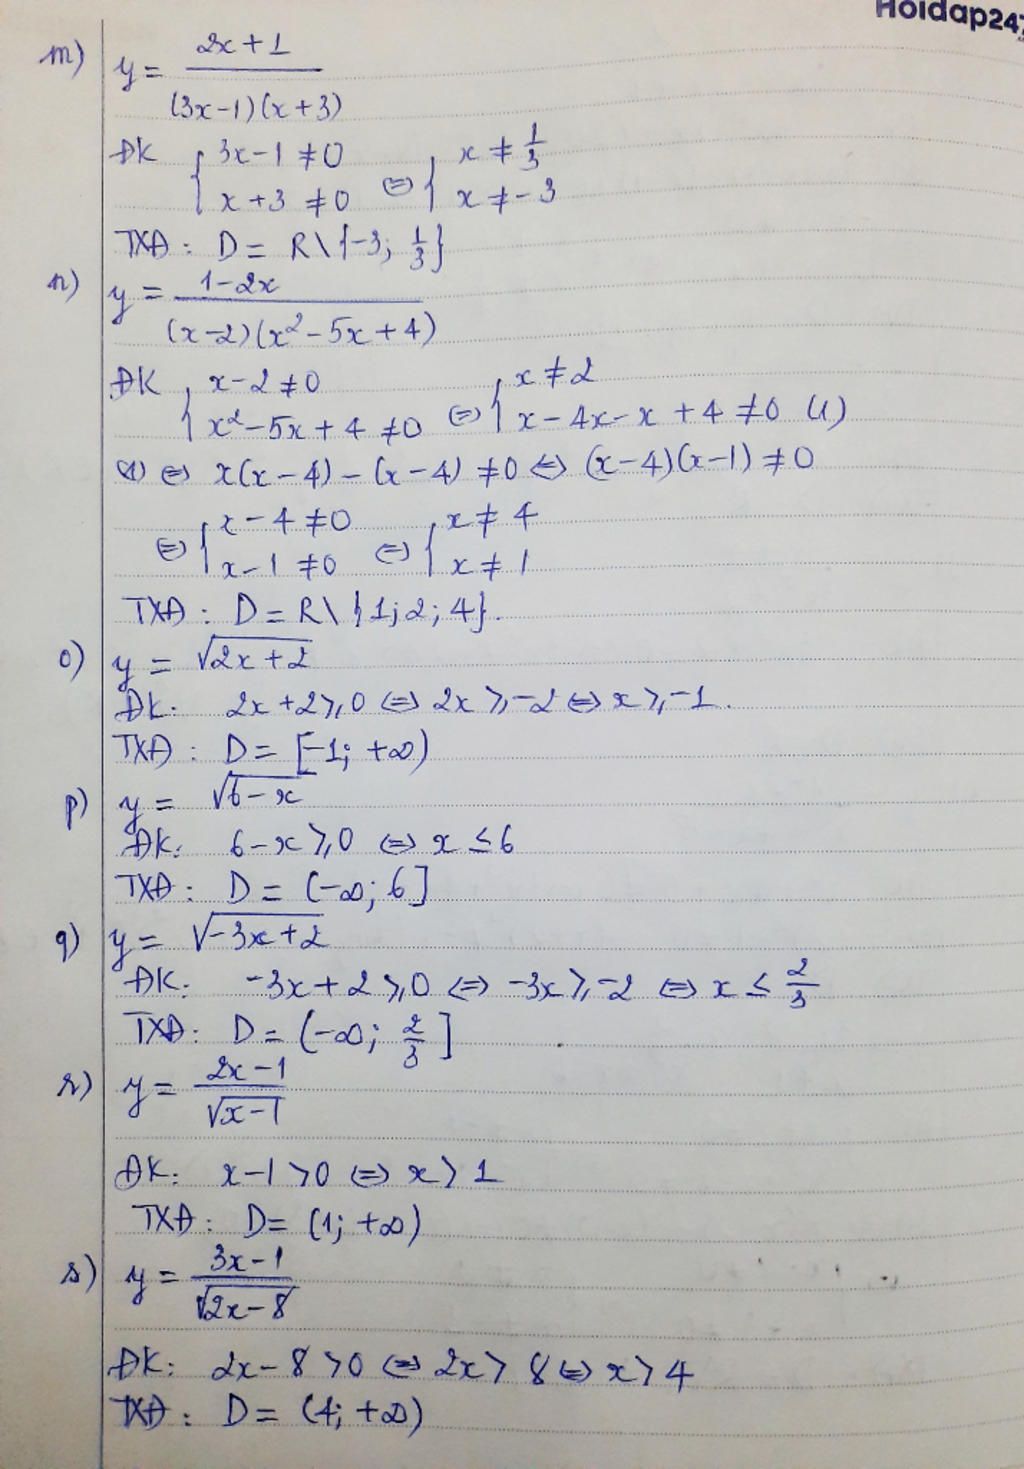 Hoidap247
m) y = \frac{2x+1}{(3x-1)(x+3)}
ĐK { 3x-1 ≠ 0 ⇔ { x ≠ \frac{1}{3}
x+3 ≠ 0 x ≠ -3
TXĐ : D = R\{-3; \frac{1}{3}}
n) y = \frac{1-2x}{(x-2)(x²-5x+4)}
ĐK { x-2 ≠ 0 ⇔ { x ≠ 2
x²-5x+4 ≠ 0 x-4x-x+4 ≠ 0 (1)
(1) ⇔ x(x-4)-(x-4) ≠ 0 ⇔ (x-4)(x-1) ≠ 0
⇔ { x-4 ≠ 0 ⇔ { x ≠ 4
x-1 ≠ 0 x ≠ 1
TXĐ : D = R\{1; 2; 4}.
o) y = √(2x+2)
ĐK: 2x+2 ≥ 0 ⇔ 2x ≥ -2 ⇔ x ≥ -1.
TXĐ : D = [-1; +∞)
p) y = √(6-x)
ĐK: 6-x ≥ 0 ⇔ x ≤ 6
TXĐ : D = (-∞; 6]
q) y = √(-3x+2)
ĐK: -3x+2 ≥ 0 ⇔ -3x ≥ -2 ⇔ x ≤ \frac{2}{3}
TXĐ : D = (-∞; \frac{2}{3}]
r) y = \frac{2x-1}{√(x-1)}
ĐK: x-1 > 0 ⇔ x > 1
TXĐ : D = (1; +∞)
s) y = \frac{3x-1}{√(2x-8)}
ĐK: 2x-8 > 0 ⇔ 2x > 8 ⇔ x > 4
TXĐ : D = (4; +∞)